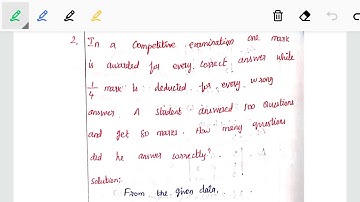 2. In a competitive examination one mark
is awarded for every correct answer while
1/4 mark is deducted for every wrong
answer. A student answered 100 Questions
and get 80 marks. How many questions
did he answer correctly?
Solution:
From the given data,